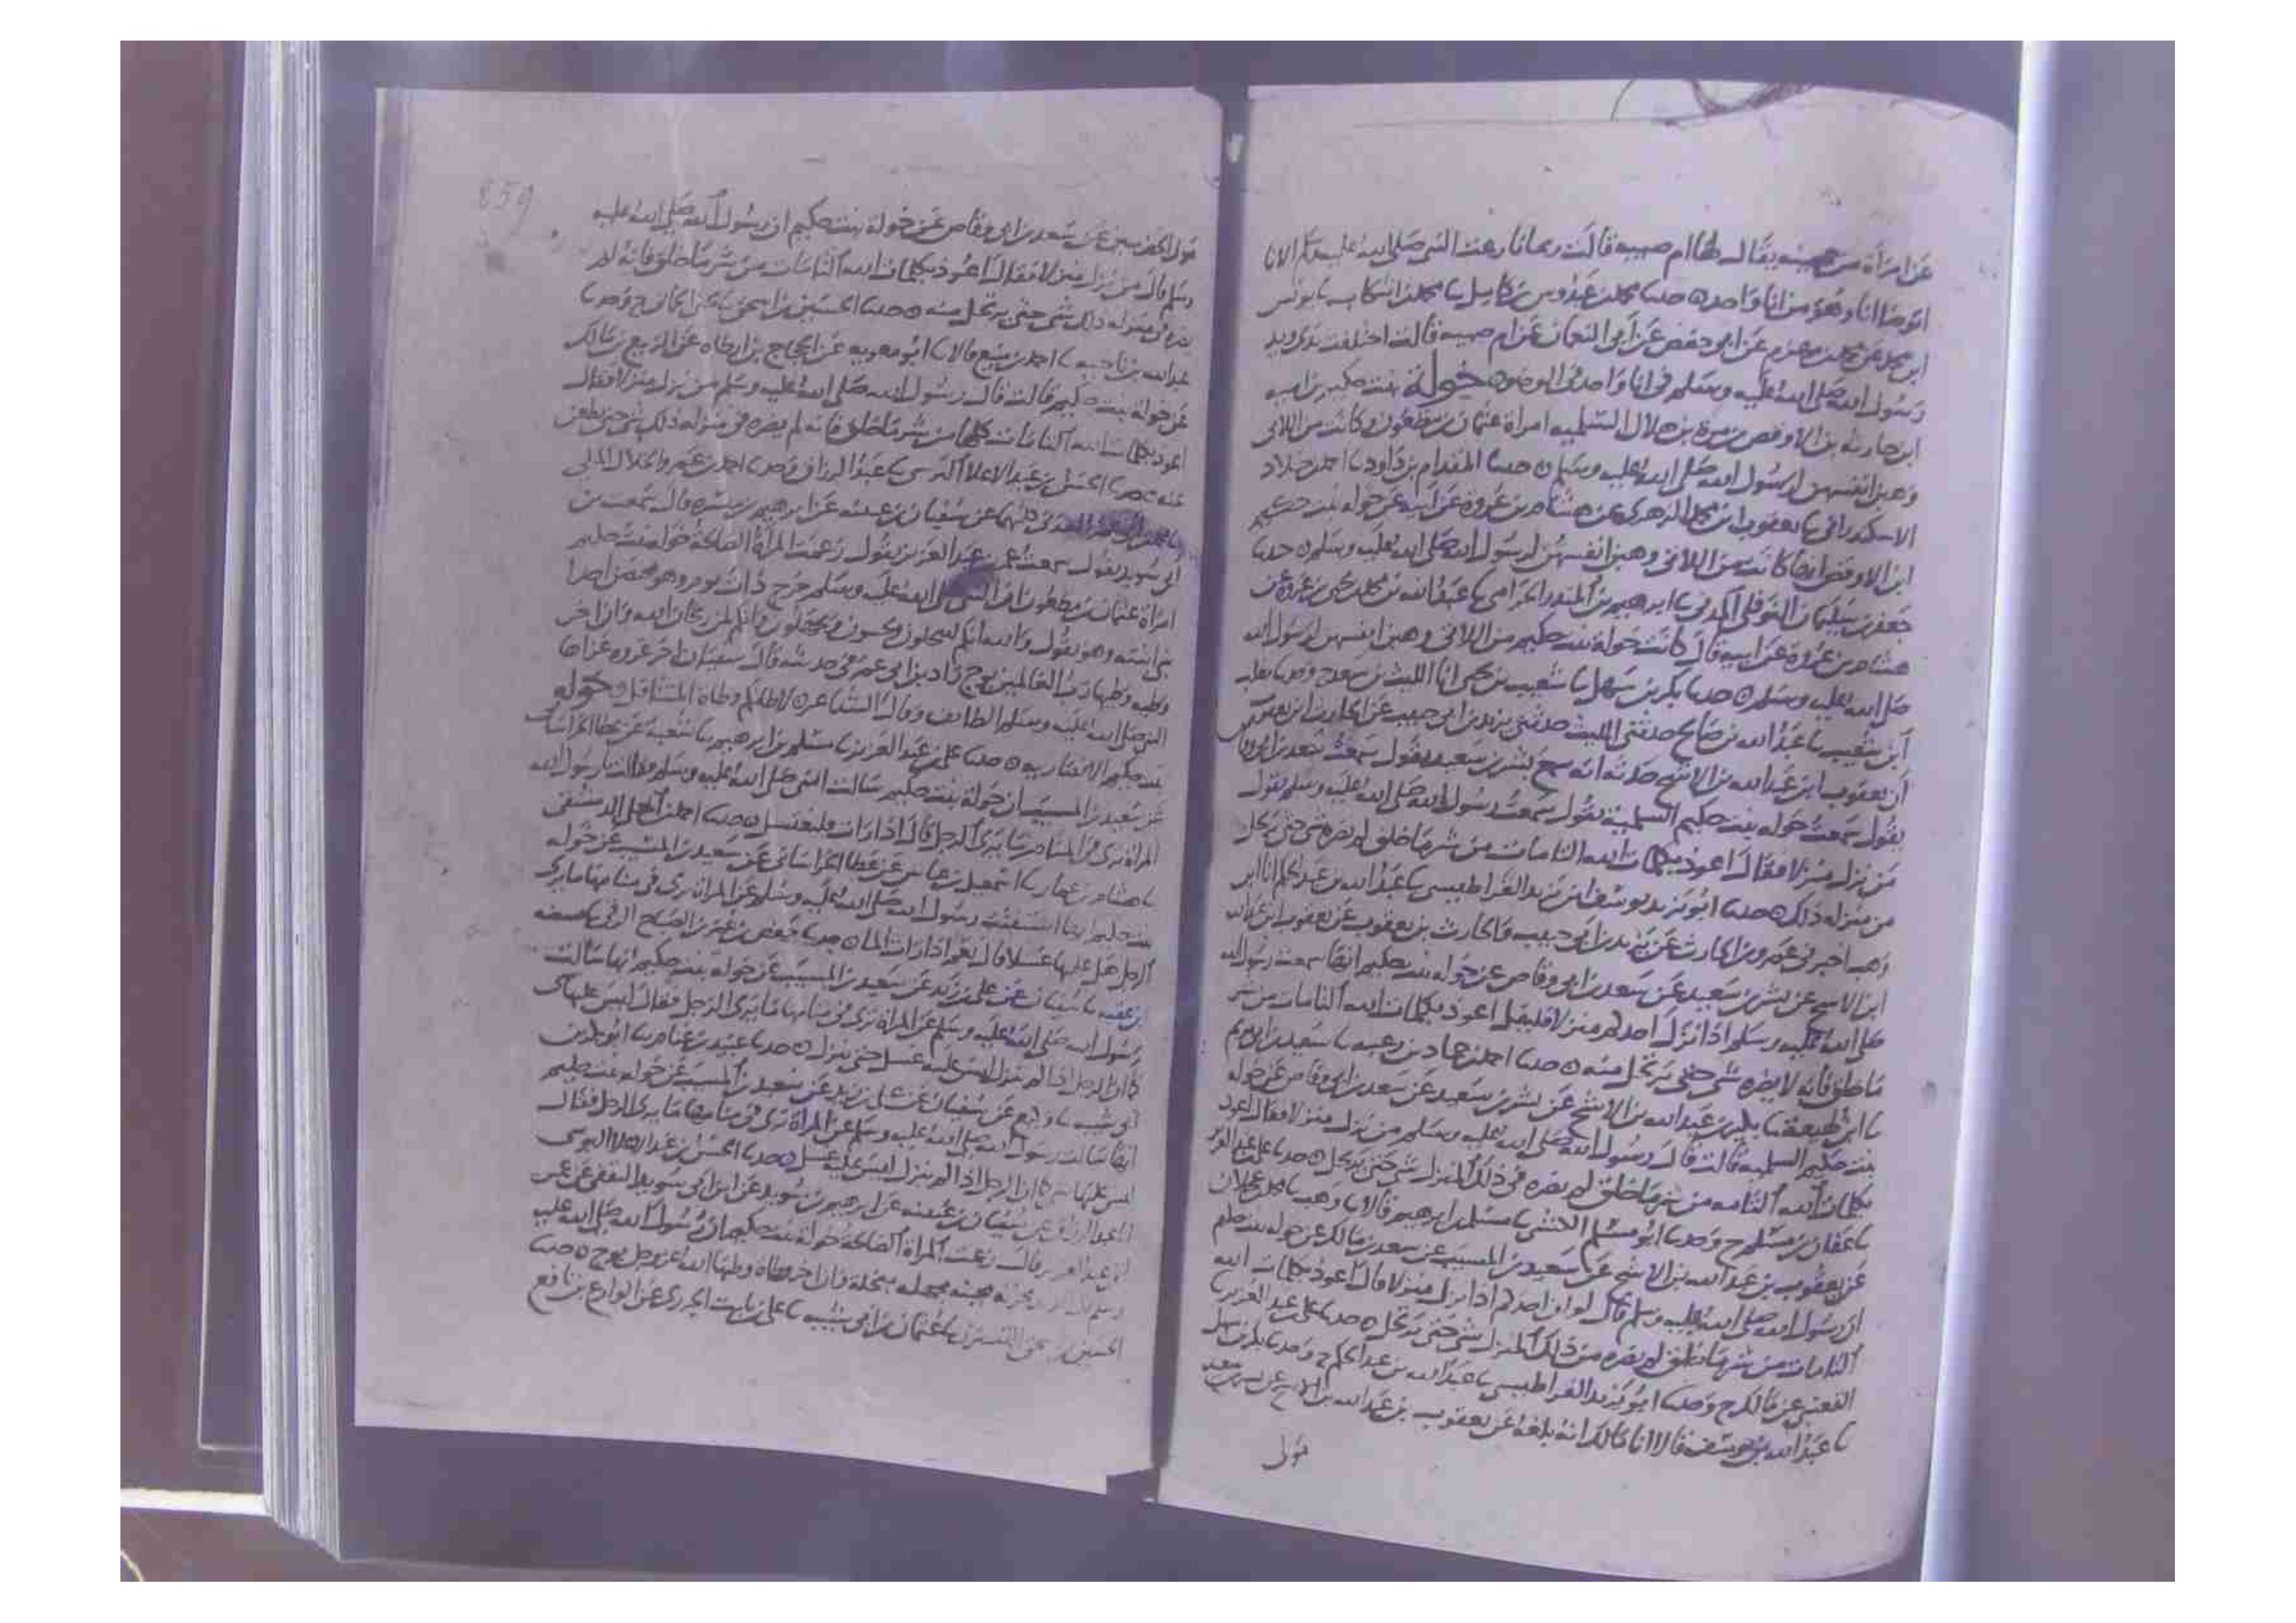 عن امرأة من جهينه يقال لها ام صبيه قالت ربما نازعت النبي صلى الله عليه وسلم الانا
اتوضا انا وهو من انا واحد ۞ حدثنا محمد بن عبدوس بن كامل نا محمد بن بكار نا يونس
عن ابي حفص عن ابي النعمان عن ام صبيه قالت اختلفت يدي ويد
رسول الله صلى الله عليه وسلم في انا واحد في الوضو ۞ خولة بنت حكيم بن اميه
ابن حارثه بن الاوقص بن مرة بن هلال السلميه امرأة عثمان بن مظعون وكانت من اللاتي
وهبن انفسهن لرسول الله صلى الله عليه وسلم ۞ حدثنا المقدام بن داود نا
الاسكندراني نا يعقوب بن محمد الزهري عن هشام بن عروة عن ابيه عن خوله بنت حكيم
ابن الاوقص انها كانت من اللاتي وهبن انفسهن لرسول الله صلى الله عليه وسلم ۞ حدثنا
جعفر بن سليمان النوفلي المدني نا ابرهيم بن المنذر الحزامي نا عبد الله بن محمد بن يحيى بن عروة عن
هشام بن عروة عن ابيه قال كانت خولة بنت حكيم من اللاتي وهبن انفسهن لرسول الله
صلى الله عليه وسلم ۞ حدثنا بكر بن سهل نا شعيب بن يحيى انا الليث بن سعد ح وحدثنا مطلب
ابن شعيب نا عبد الله بن صالح حدثني الليث حدثني يزيد بن ابي حبيب عن الحارث بن يعقوب
ان يعقوب ابن عبد الله بن الاشج حدثه انه سمع بسر بن سعيد يقول سمعت سعد بن ابي وقاص
يقول سمعت خوله بنت حكيم السلمية تقول سمعت رسول الله صلى الله عليه وسلم يقول
من نزل منزلا فقال اعوذ بكلمات الله التامات من شر ما خلق لم يضره شي حتى يرتحل
من منزله ذلك ۞ حدثنا ابو يزيد يوسف بن يزيد القراطيسي نا عبد الله بن عبد الحكم انا ابن
وهب اخبرني عمرو بن الحارث عن يزيد بن ابي حبيب والحارث بن يعقوب عن يعقوب بن عبد الله
ابن الاشج عن بسر بن سعيد عن سعد بن ابي وقاص عن خوله بنت حكيم انها سمعت رسول الله
صلى الله عليه وسلم اذا نزل احدكم منزلا فليقل اعوذ بكلمات الله التامات من شر
ما خلق فانه لا يضره شي حتى يرتحل منه ۞ حدثنا احمد بن حماد بن زغبه نا سعيد بن ابي مريم
نا ابن لهيعة نا بكير بن عبد الله بن الاشج عن بسر بن سعيد عن سعد بن ابي وقاص عن خوله
بنت حكيم السلميه قالت قال رسول الله صلى الله عليه وسلم من نزل منزلا فقال اعوذ
بكلمات الله التامه من شر ما خلق لم يضره في ذلك المنزل شي حتى يرتحل ۞ حدثنا علي بن عبد العزيز
نا عفان بن مسلم ح وحدثنا ابو مسلم الكشي نا مسلم بن ابرهيم قالا نا وهيب نا محمد بن عجلان
عن يعقوب بن عبد الله بن الاشج عن سعيد بن المسيب عن سعد بن مالك عن خوله بنت حكيم
ان رسول الله صلى الله عليه وسلم قال لو ان احدكم اذا نزل منزلا قال اعوذ بكلمات الله
التامات من شر ما خلق لم يضره من ذلك المنزل شي حتى يرتحل ۞ حدثنا علي بن عبد العزيز نا
القعنبي عن مالك ح وحدثنا ابو يزيد القراطيسي نا عبد الله بن عبد الحكم ح وحدثنا بكر بن سهل
نا عبد الله بن يوسف قالا انا مالك انه بلغه عن يعقوب بن عبد الله بن الاشج عن بسر بن سعيد
مولى
859
مولى الحضرميين عن سعد بن ابي وقاص عن خولة بنت حكيم ان رسول الله صلى الله عليه
وسلم قال من نزل منزلا فقال اعوذ بكلمات الله التامات من شر ما خلق فانه لم
يضره في منزله ذلك شي حتى يرتحل منه ۞ حدثنا الحسين بن اسحق نا يحيى الحماني ح وحدثنا
عبد الله بن ناجيه نا احمد بن منيع قالا نا ابو معويه عن الحجاج بن ارطاه عن الربيع بن مالك
عن خولة بنت حكيم قالت قال رسول الله صلى الله عليه وسلم من نزل منزلا فقال
اعوذ بكلمات الله التامات كلها من شر ما خلق فانه لم يضره في منزله ذلك شي حتى يظعن
عنه ۞ حدثنا الحسن بن عبد الاعلا النرسي نا عبد الرزاق وحدثنا احمد بن عمرو الخلال المكي
نا محمد بن ابي عمر العدني كلاهما عن سفيان بن عيينه عن ابرهيم بن ميسره قال سمعت بن
ابي سويد يقول سمعت عمر بن عبد العزيز يقول زعمت المرأة الصالحة خوله بنت حكيم
امرأة عثمان بن مظعون ان النبي صلى الله عليه وسلم خرج ذات يوم وهو محتضن احد
بني ابنته وهو يقول والله انكم لتبخلون وتجبنون وتجهلون وانكم لمن ريحان الله وان اخر
وطيه وطيها رب العالمين بوج زاد بن ابي عمر في حديثه قال سفيان اخر غزوه غزاها
النبي صلى الله عليه وسلم الطائف وقال الشاعر لاطانكم وطاه المتثاقل ۞ خوله
بنت حكيم الانصاريه ۞ حدثنا علي بن عبد العزيز نا مسلم بن ابرهيم نا شعبة عن عطا الخراساني
عن سعيد بن المسيب ان خولة بنت حكيم سالت النبي صلى الله عليه وسلم فقالت يا رسول الله
المرأة ترى في المنام ما يرى الرجل قال اذا رات فلتغتسل ۞ حدثنا احمد بن المعلى الدمشقي
نا هشام بن عمار نا اسمعيل بن عياش عن عطا الخراساني عن سعيد بن المسيب عن خوله
بنت حكيم انها استفتت رسول الله صلى الله عليه وسلم عن المرأة ترى في منامها ما يرى
الرجل هل عليها غسل قال نعم اذا رات الما ۞ حدثنا حفص بن عمر بن الصباح الرقي نا قبيصه
ابن عقبه نا سفيان عن علي بن زيد عن سعيد بن المسيب عن خوله بنت حكيم انها سالت
رسول الله صلى الله عليه وسلم عن المرأة ترى في منامها ما يرى الرجل فقال ليس عليها شي
كما ان الرجل اذا لم ينزل ليس عليه غسل حتى ينزل ۞ حدثنا عبيد بن غنام نا ابو بكر بن
ابي شيبه نا وكيع عن سفيان عن علي بن زيد عن سعيد بن المسيب عن خوله بنت حكيم
انها سالت رسول الله صلى الله عليه وسلم عن المرأة ترى في منامها ما يرى الرجل فقال
ليس عليها شي كما ان الرجل اذا لم ينزل ليس عليه غسل ۞ حدثنا الحسن بن عبد الاعلا البوسي
انا عبد الرزاق عن سفيان بن عيينه عن ابرهيم بن سويد عن ابن ابي سويد الثقفي عن عمر
ابن عبد العزيز قال زعمت المرأة الصالحة خولة بنت حكيم ان رسول الله صلى الله عليه
وسلم قال مجبنه مجهله مبخلة وان اخر وطاة وطيها الله عز وجل بوج ۞ حدثنا
الحسين بن اسحق التستري نا عثمان بن ابي شيبه نا علي بن ثابت الجزري عن الوازع بن نافع